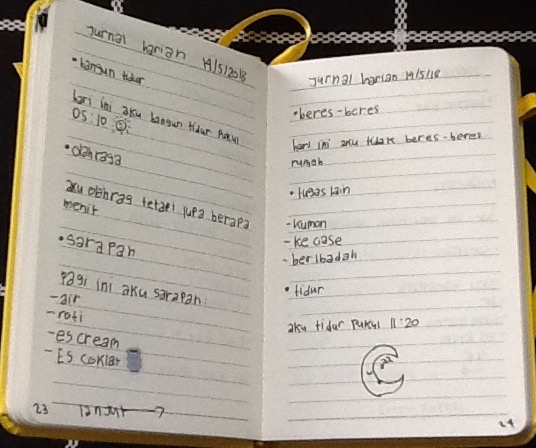 Jurnal harian 19/5/2018
• bangun tidur
hari ini aku bangun tidur pukul
05:10
• olahraga
aku olahrag tetapi lupa berapa
menit
• sarapan
Pagi ini aku sarapan:
- air
- roti
- es cream
- Es coklat
23 lanjut →
Jurnal harian 19/5/18
• beres-beres
hari ini aku tidak beres-beres
rumah
• tugas lain
- kumon
- ke oase
- beribadah
• tidur
aku tidur pukul 11:20
24